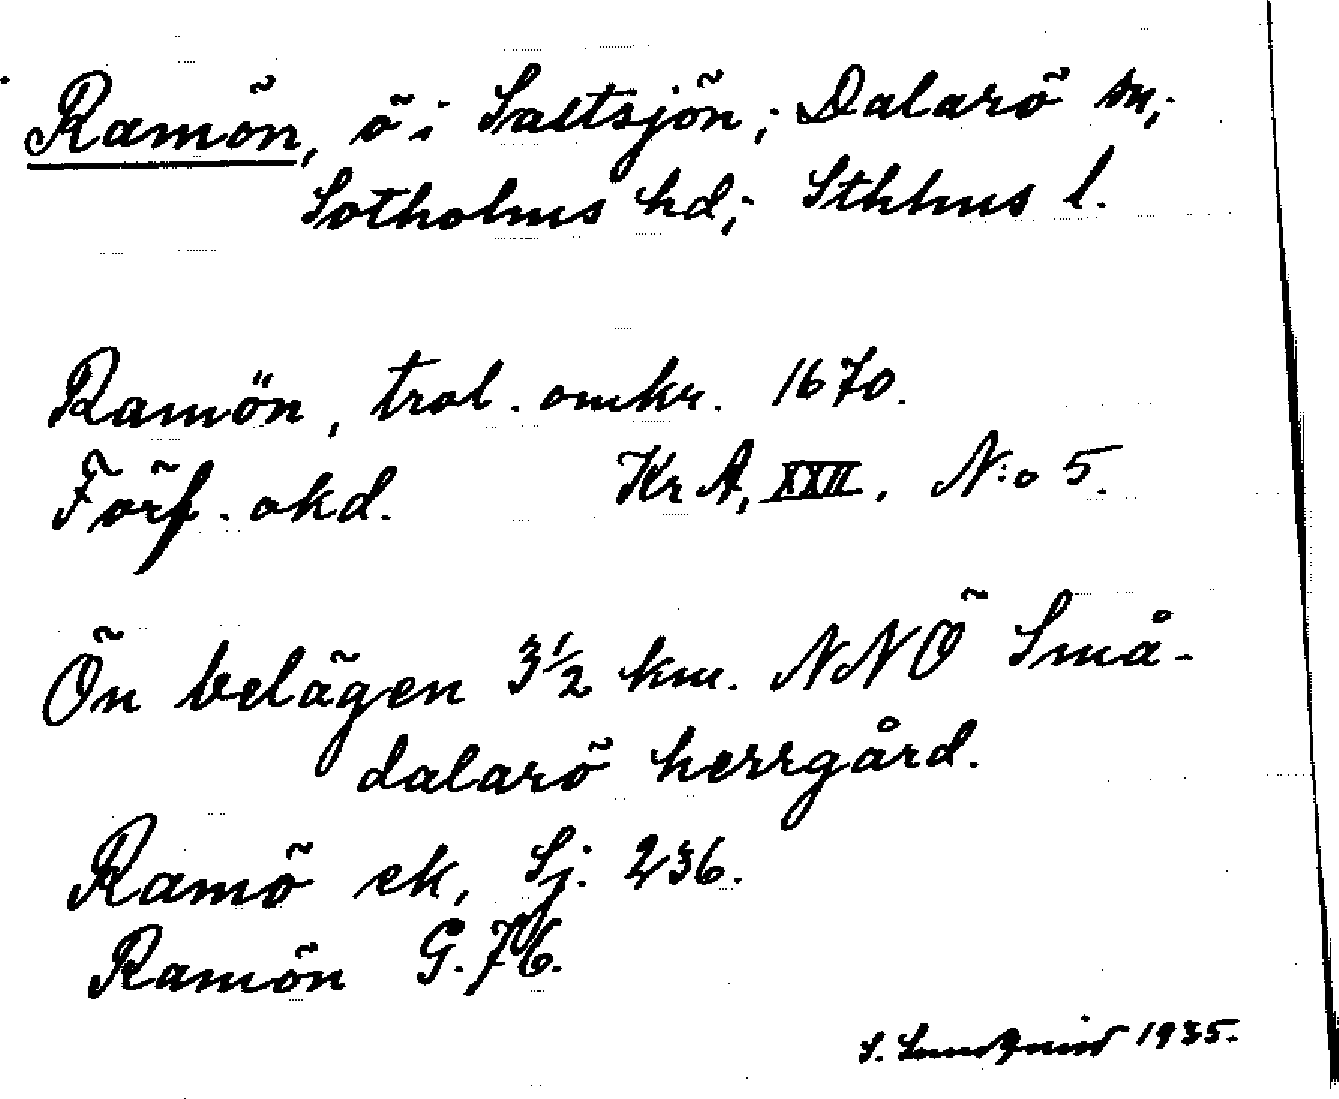 Ramön, ö i Saltsjön; Dalarö sn;
Sotholms hd; Sthlms l.
Ramön, trol. omkr. 1670.
Förf. okd. Kr A, XXII. N:o 5.
Ön belägen 3½ km. NNÖ Små-
dalarö herrgård.
Ramö ek, Sj. 236.
Ramön G. 76.
S. Lundqvist 1935.